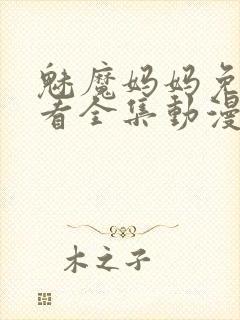 魅魔妈妈免
看全集動漫
木之子